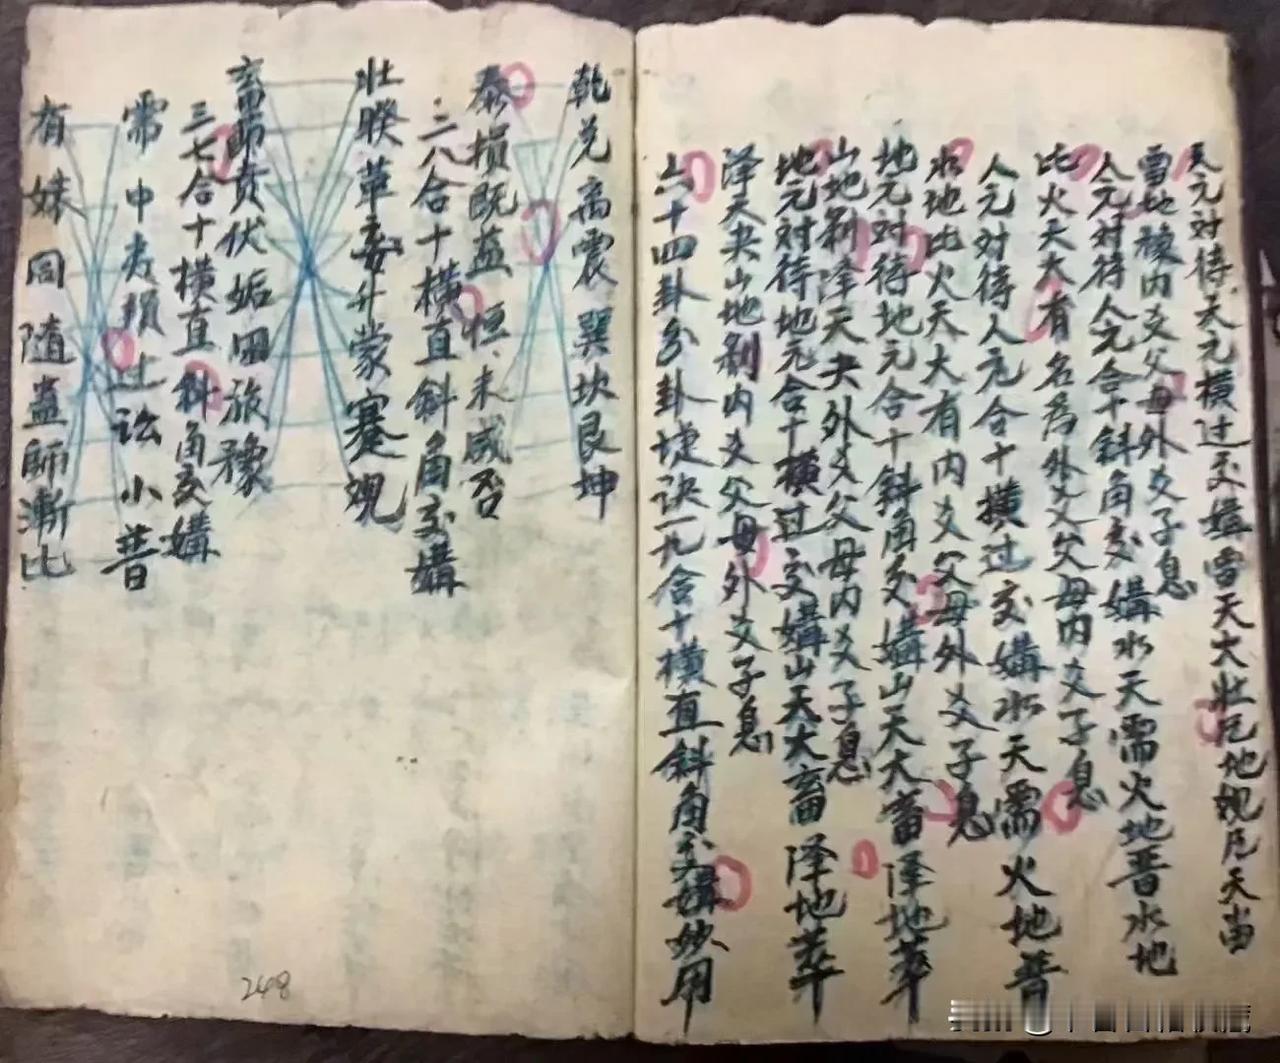 天元对待天元横过交媾雷天大壮风地观风天当
雷地豫内爻父母外爻子息
人元对待人元合十斜角交媾水天需火地晋水地
比火天大有名为外爻父母内爻子息
人元对待人元合十横过交媾水天需火地晋
水地比火天大有内爻父母外爻子息
地元对待地元合十斜角交媾山天大畜泽地萃
山地剝泽天夬外爻父母内爻子息
地元对待地元合十横过交媾山天大畜泽地萃
泽天夬山地剝内爻父母外爻子息
六十四卦分卦捷诀一九合十横直斜角交媾妙用
乾兑离震巽坎艮坤
泰损既益恒未咸否
二八合十横直斜角交媾
壮睽革妄升蒙蹇观
畜节贲伏姤困旅豫
三七合十横直斜角交媾
需中夬颐过讼小晋
有妹同随蛊師漸比
248